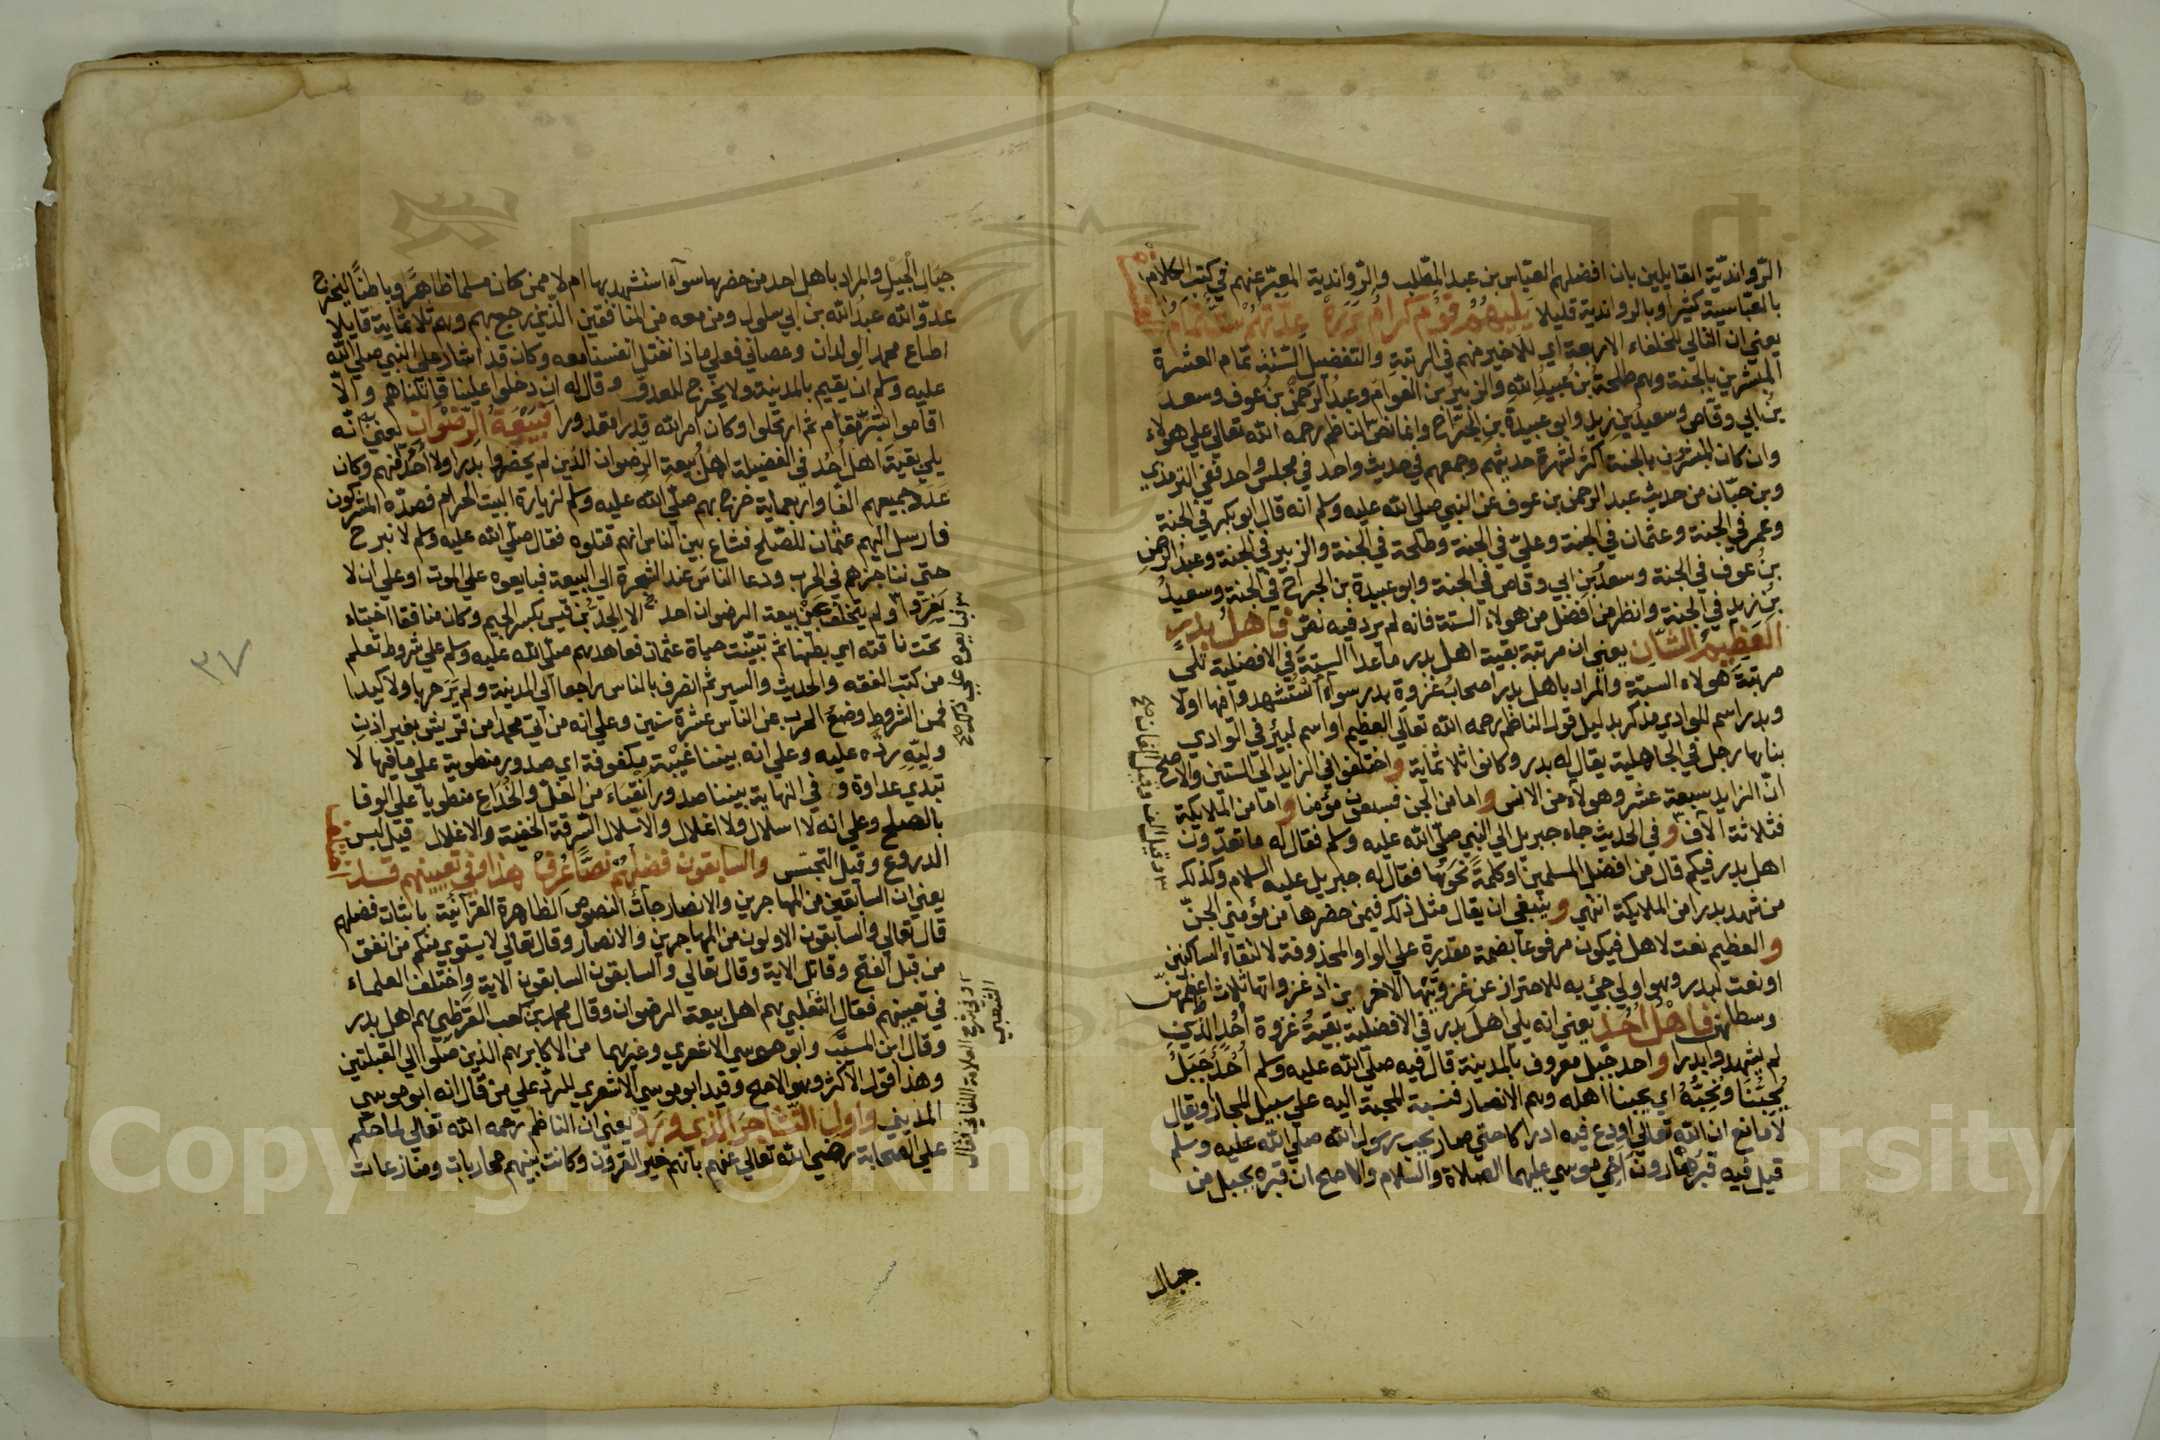 الرّواندية القايلين بان افضلهم العبّاس بن عبد المطّلب والرّواندية المعبّر عنهم في كتب الكلام
بالعبّاسية كثيرا وبالرواندية قليلا يليهم قوم كرام بررة عدتهم ست تمام العشرة
يعني ان التالي للخلفاء الاربعة اي للاخير منهم في الرتبة والتفضيل الستة تمام العشرة
المبشرين بالجنة وهم طلحة بن عبيد الله والزبير بن العوام وعبد الرحمن بن عوف وسعد
بن ابي وقاص وسعيد بن زيد وابو عبيدة بن الجراح وانما نصّ الناظم رحمه الله تعالي علي هولاء
وان كان المبشرون بالجنة اكثر لشهرة حديثهم وجمعهم في حديث واحد في مجلس واحد ففي الترمذي
وبن حبّان من حديث عبد الرحمن بن عوف عن النبي صلي الله عليه وسلم انه قال ابو بكر في الجنة
وعمر في الجنة وعثمان في الجنة وعليّ في الجنة وطلحة في الجنة والزبير في الجنة وعبد الرحمن
بن عوف في الجنة وسعد بن ابي وقاص في الجنة وابو عبيدة بن الجراح في الجنة وسعيد
بن زيد في الجنة وانظر من افضل من هولاء الستة فانه لم يرد فيه نصّ فاهل بدر
العظيم الشان يعني ان مرتبة بقية اهل بدر ما عدا الستة في الافضلية تلي
مرتبة هولاء الستة والمراد باهل بدر اصحاب غزوة بدر سواء استشهدوا فيها اولا
وبدر اسم للوادي مذكر بدليل قول الناظم رحمه الله تعالي العظيم او اسم لبير في الوادي
بناها رجل في الجاهلية يقال له بدر وكانوا ثلاثماية واختلفوا في الزايد الي الستين والاصح
انّ الزايد سبعة عشر وهولاء من الانس واما من الجن فسبعون مؤمنا واما من الملايكة
فثلاثة آلاف وفي الحديث جاء جبريل الي النبي صلّي الله عليه وسلم فقال له ما تعدّون
اهل بدر فيكم قال من افضل المسلمين او كلمة نحوها فقال له جبريل عليه السلام وكذلك
من شهد بدرا من الملايكة انتهي وينبغي ان يقال مثل ذلك فيمن حضرها من مؤمني الجنّ
والعظيم نعت لاهل فيكون مرفوعا بضمة مقدرة علي الواو المحذوفة لالتقاء الساكنين
او نعت لبدر وهو اولي جيء به للاحتراز عن غزوتيها الاخريين اذ غزواتها ثلاث اعظمهنّ
وسطاهن فاهل احد يعني انه يلي اهل بدر في الافضلية بقية غزوة احد الذين
لم يشهدوا بدرا واحد جبل معروف بالمدينة قال فيه صلّي الله عليه وسلم احد جبل
يحبنا ونحبه اي يحبنا اهله وهم الانصار فنسبة المحبة اليه علي سبيل المجاز ويقال
لا مانع ان الله تعالي اودع فيه ادراكا حتي صار يحب رسول الله صلي الله عليه وسلم
قيل فيه قبر هارون اخي موسي عليهما الصلاة والسلام والاصح ان قبره بجبل من
جبال
وقيل الف وقيل الفان صح
جبال الجبل والمراد باهل احد من حضرها سوآء استشهد بها ام لا ممن كان مسلما ظاهرًا وباطنًا ليخرج
عدوّ الله عبد الله بن ابي سلول ومن معه من المنافقين الذين رجع بهم وهم ثلاثماية قايلا
اطاع محمد الولدان وعصاني فعلي ماذا نقتل انفسنا معه وكان قد اشار علي النبي صلي الله
عليه وسلم ان يقيم بالمدينة ولا يخرج للعدو وقال له ان دخلوا علينا قاتلناهم والّا
اقاموا بشرّ مقام ثم ارتحلوا وكان امر الله قدرا مقدورا فبيعة الرضوان يعني انّه
يلي بقية اهل احد في الفضيلة اهل بيعة الرضوان الذين لم يحضروا بدرا ولا احد منهم وكان
عدد جميعهم الفا واربعماية خرج بهم صلي الله عليه وسلم لزيارة البيت الحرام فصدّه المشركون
فارسل اليهم عثمان للصّلح فشاع بين الناس انهم قتلوه فقال صلّي الله عليه وسلم لا نبرح
حتي نناجزهم في الحرب ودعا الناس عند الشجرة الي البيعة فبايعوه علي الموت او علي ان لا
يفروا ولم يتخلف عن بيعة الرضوان احد الا الجد بن قيس بكسر الجيم وكان منافقا اختباء
تحت ناقته اي بطنها ثم تبيّنت حياة عثمان فعاهدهم صلّي الله عليه وسلم علي شروط تعلم
من كتب الفقه والحديث والسير ثم انصرف بالناس راجعا الي المدينة ولم ير حربا ولا كيدا
فمن الشروط وضع الحرب عن الناس عشرة سنين وعلي انه من اتي محمدا من قريش بغير اذن
وليّه ردّه عليه وعلي انه بيننا عيبة مكفوفة اي صدور منطوية علي ما فيها لا
تبدي عداوة وفي النهاية بيننا صدورا نقية من الغلّ والخداع منطويا علي الوفا
بالصلح وعلي انه لا اسلال ولا اغلال والاسلال السّرقة الخفية والاغلال قيل لبس
الدروع وقيل التجسّس والسابقون فضلهم نصا عرف هذا وفي تعيينهم قد اختلف
يعني ان السابقين من المهاجرين والانصار جاءت النصوص الظاهرة القرآنية باثبات فضلهم
قال تعالي والسابقون الاولون من المهاجرين والانصار وقال تعالي لا يستوي منكم من انفق
من قبل الفتح وقاتل الاية وقال تعالي والسابقون السابقون الاية واختلف العلماء
في تعيينهم فقال الثعلبي هم اهل بيعة الرضوان وقال محمد بن كعب القرظي هم اهل بدر
وقال ابن المسيّب وابو موسي الاشعري وغيرهما من الاكابر هم الذين صلّوا الي القبلتين
وهذا قول الاكثر وهو الاصح وقيد ابو موسي الاشعري للردّ علي من قال انه ابو موسي
المديني واول التشاجر الذي ورد يعني ان الناظم رحمه الله تعالي لما حكم
علي الصحابة رضي الله تعالي عنهم بانهم خير القرون وكانت بينهم محاربات ومنازعات
فبايعوه علي ذلك صح
وفي شرح العلامة اللقاني فقال
الشعبي
٣٧